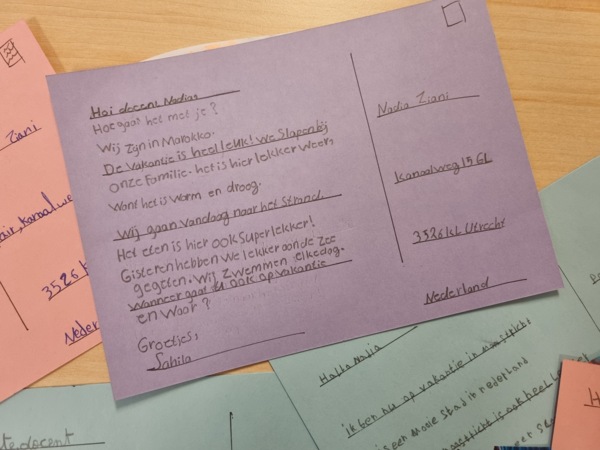 Hoi docent Nadia,
Hoe gaat het met je?
Wij zyn in Marokko.
De vakantie is heel leuk! We slapen bij
onze familie. het is hier lekker weer,
Want het is warm en droog.
Wij gaan vandaag naar het strand.
Het eten is hier ook super lekker!
Gisteren hebben we lekker aan de zee
gegeten. Wij zwemmen elkedag.
Wanneer gaat u ook op vakantie
en waar?
Groetjes,
Sahila
Nadia Ziani
Kanaalweg 15 GL
3526 KL Utrecht
Nederland
Ziani
3526 K
Neder
te docent
Hallo Nadia
ik ben nu op vakantie in
is een mooie stad in nederland
is ook heel